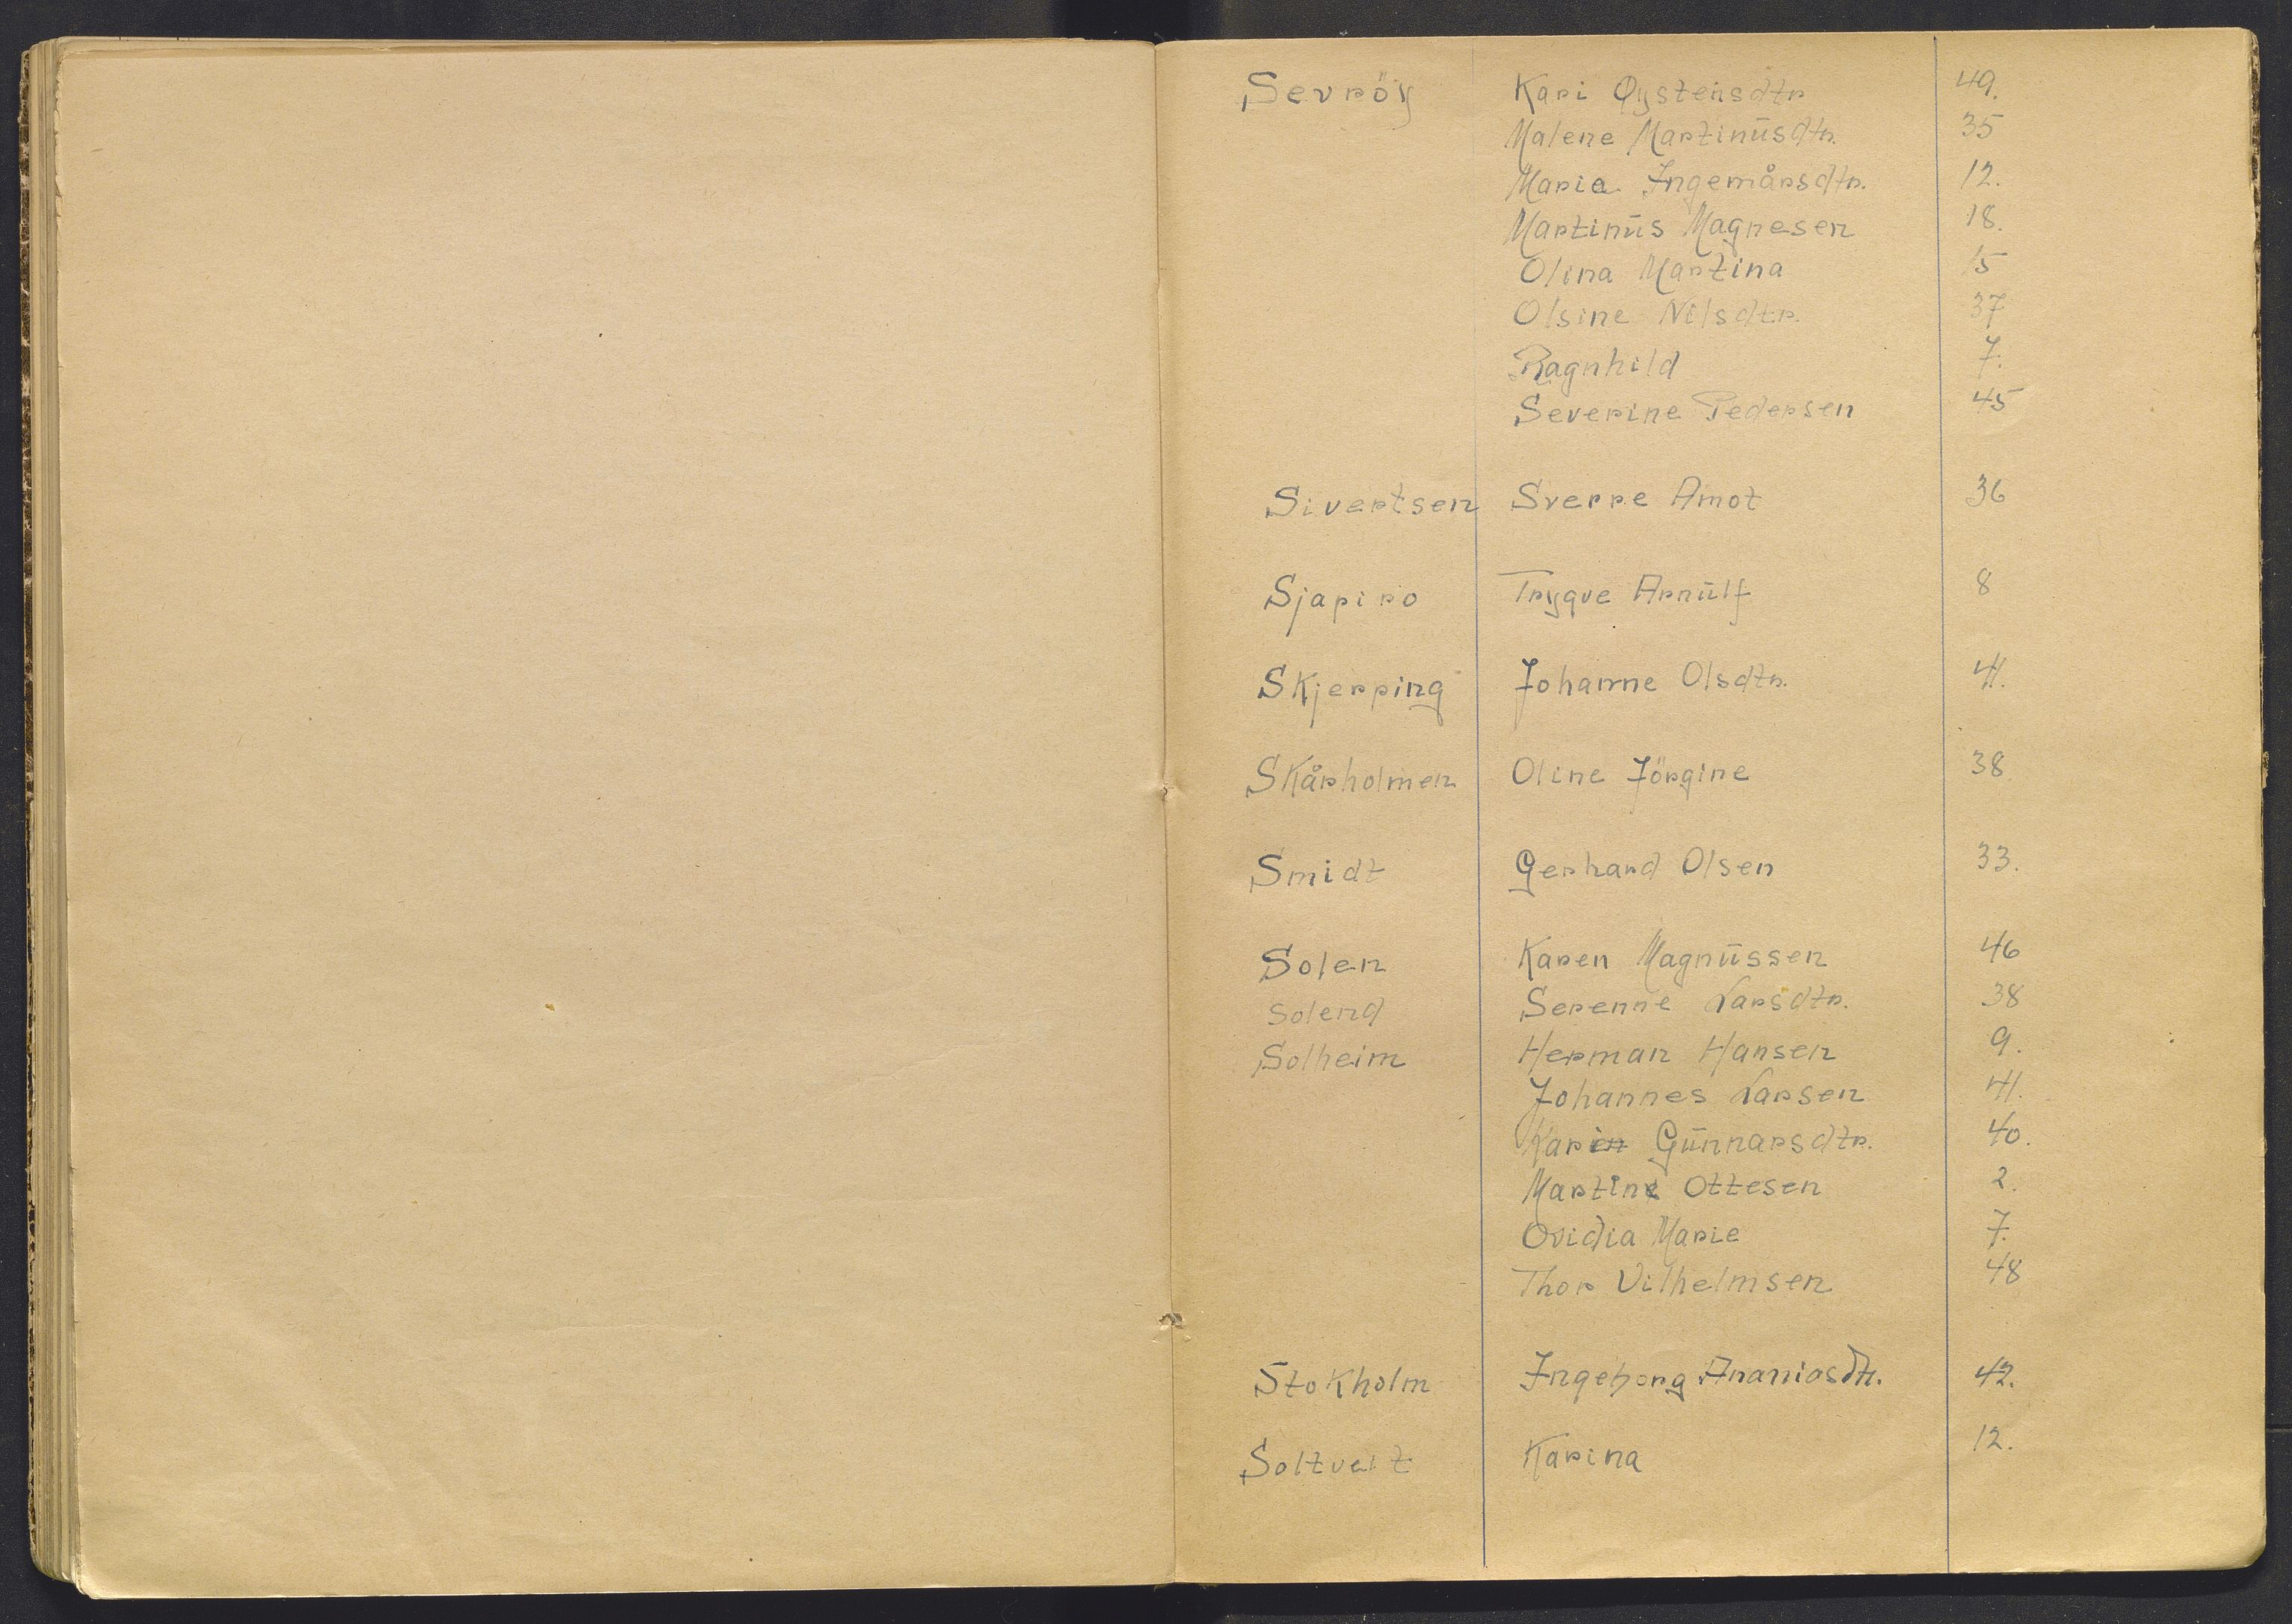 Sevröy Kari Øysteinsdtr 49.
Malene Martinusdtr. 35
Marie Ingemårsdtr. 12.
Martinus Magnesen 18.
Olina Martina 15
Olsine Nilsdtr. 37
Ragnhild 7.
Severine Pedersen 45
Sivertsen Sverre Amot 36
Sjapiro Trygve Arnulf 8
Skjerping Johanne Olsdtr. 41.
Skårholmen Oline Jörgine 38
Smidt Gerhard Olsen 33.
Solen Karen Magnussen 46
Solend Serenne Larsdtr. 38
Solheim Herman Hansen 9.
Johannes Larsen 41.
Kari Gunnarsdtr. 40.
Martin Ottesen 2.
Ovidia Marie 7.
Thor Vilhelmsen 48
Stokholm Ingeborg Ananiasdtr. 42.
Soltveit Karina 12.